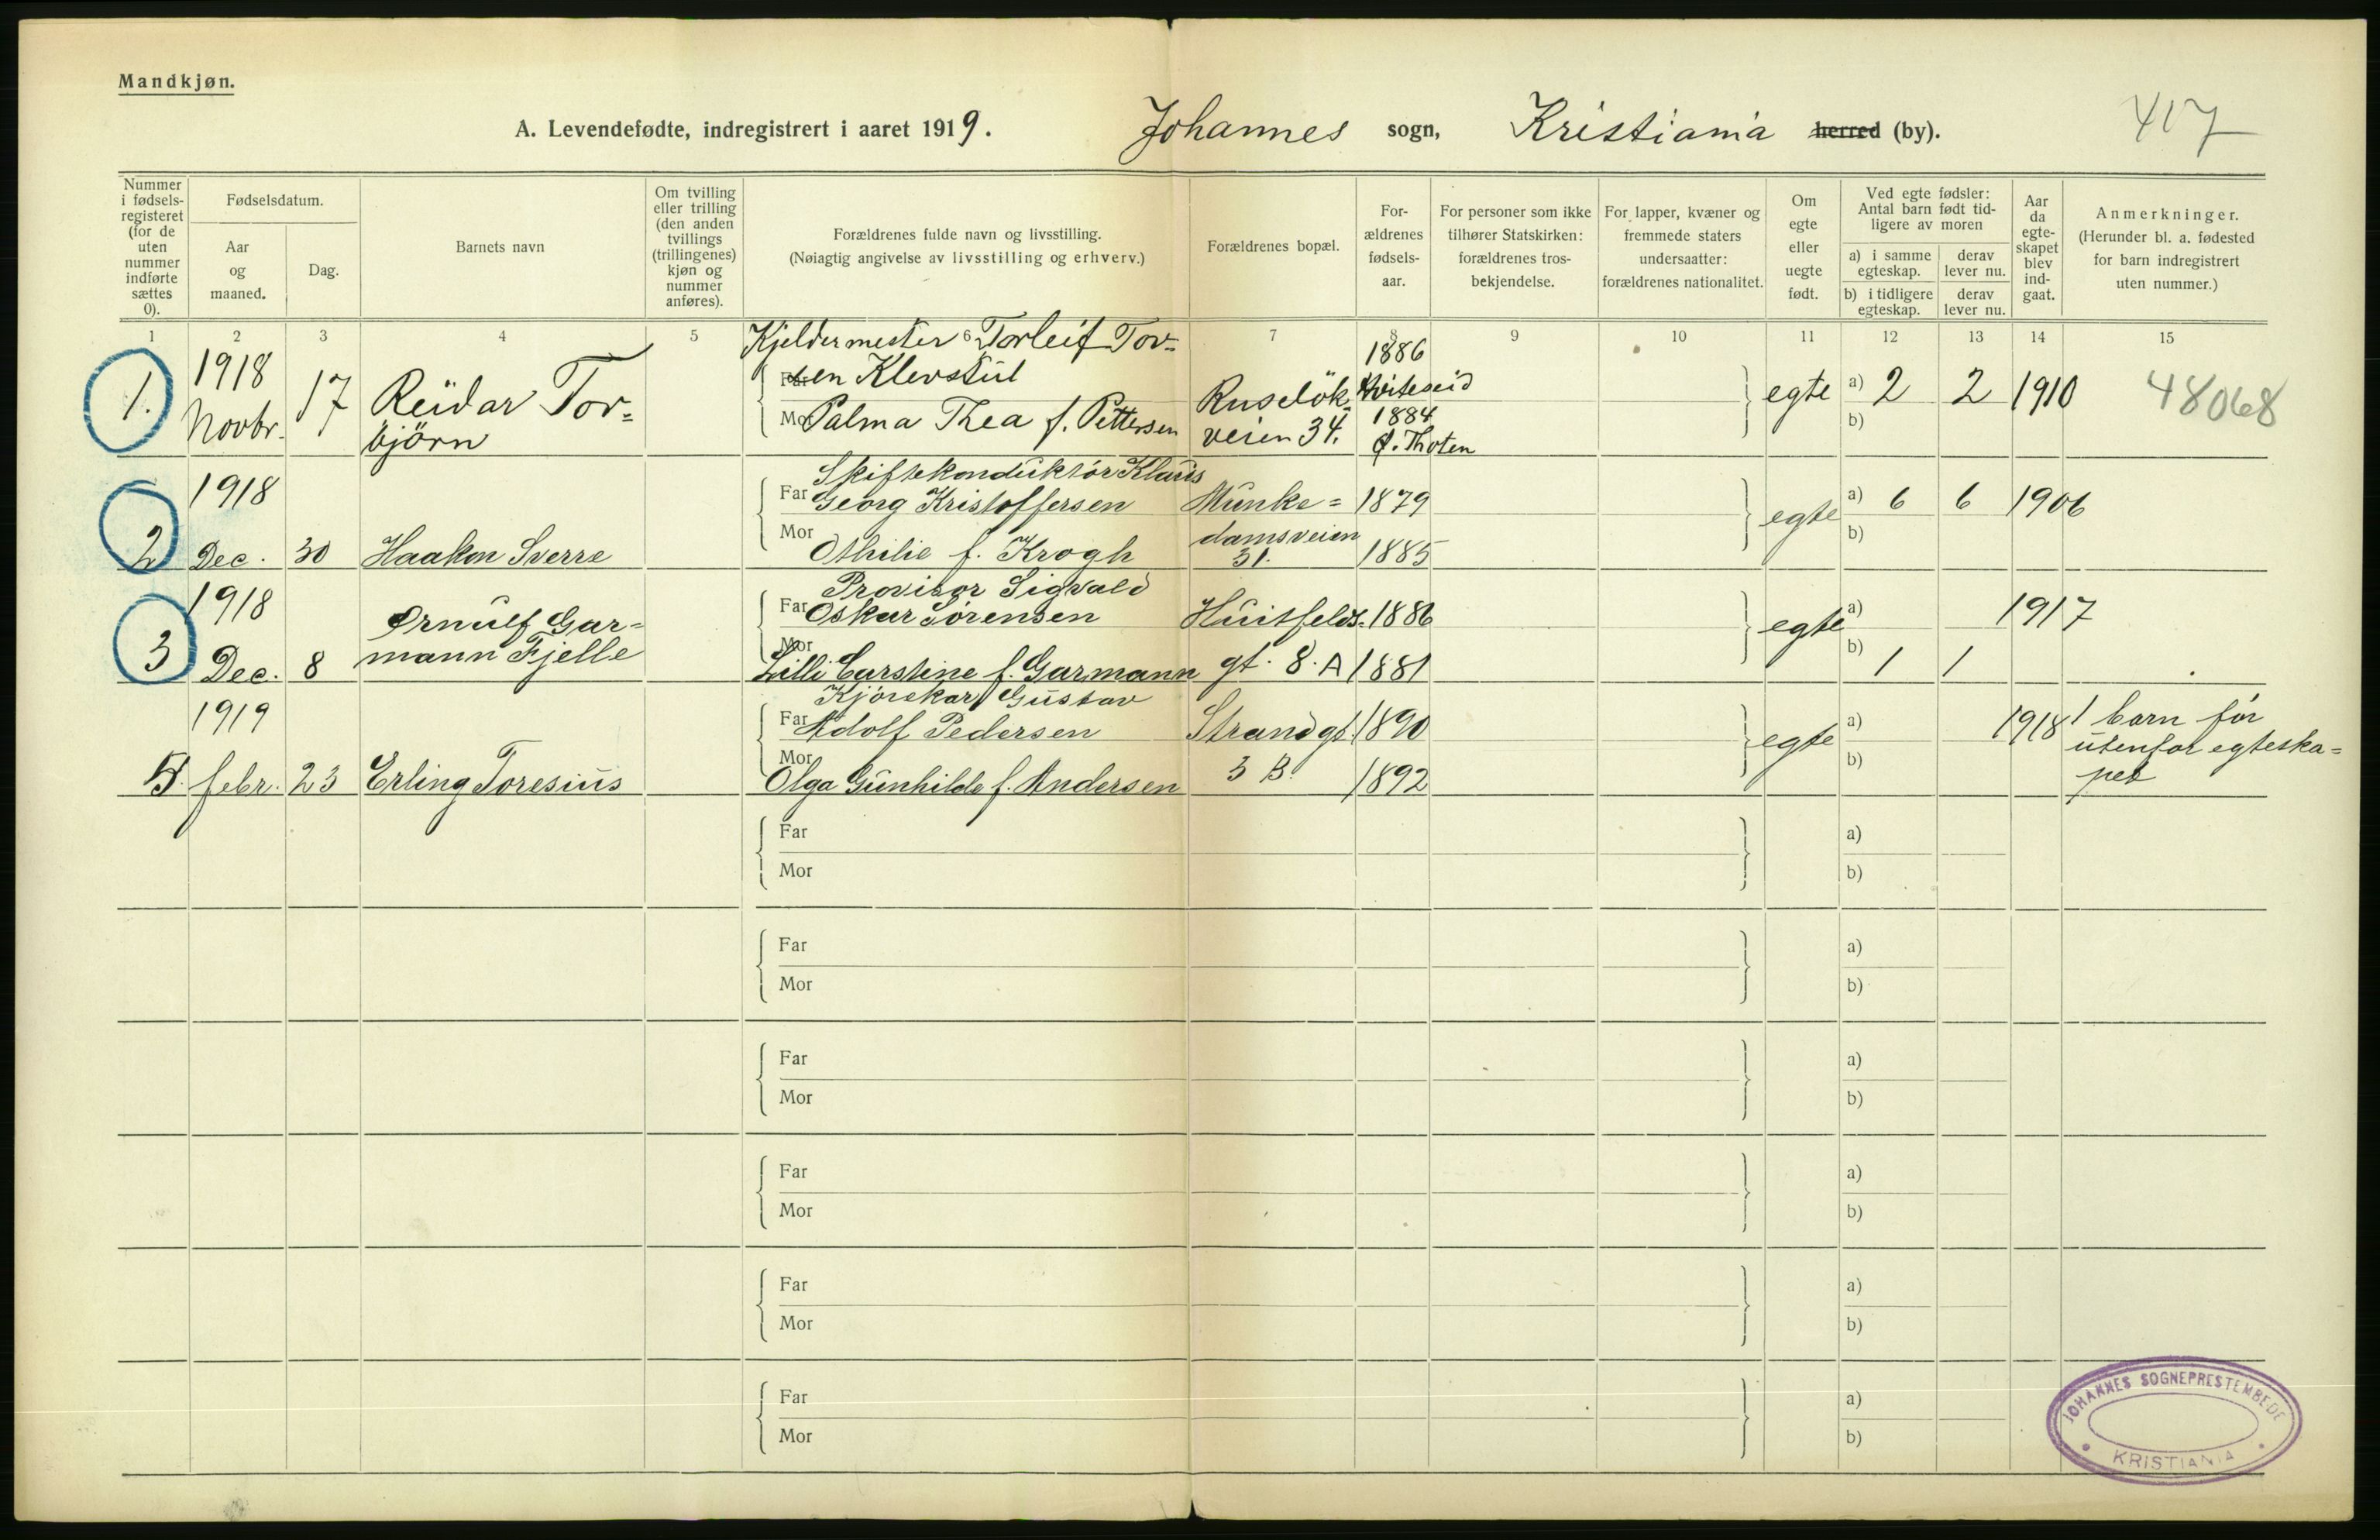 Mandkjøn.
A. Levendefødte, indregistrert i aaret 1919. Johannes sogn, Kristiania herred (by). 417
Nummer i fødsels-registeret (for de uten nummer indførte sættes 0).
Fødselsdatum.
Aar og maaned.
Dag.
Barnets navn
Om tvilling eller trilling (den anden tvillings (trillingenes) kjøn og nummer anføres).
Forældrenes fulde navn og livsstilling.
(Nøiagtig angivelse av livsstilling og erhverv.)
Forældrenes bopæl.
For-ældrenes fødsels-aar.
For personer som ikke tilhører Statskirken: forældrenes tros-bekjendelse.
For lapper, kvæner og fremmede staters undersaatter: forældrenes nationalitet.
Om egte eller uegte født.
Ved egte fødsler: Antal barn født tid-ligere av moren
a) i samme egteskap.
derav lever nu.
b) i tidligere egteskap.
derav lever nu.
Aar da egte-skapet blev ind-gaat.
Anmerkninger.
(Herunder bl. a. fødested for barn indregistrert uten nummer.)
1 2 3 4 5 6 7 8 9 10 11 12 13 14 15
Kjeldermester Torleif Tov= 1886
1. 1918 Novbr. 17 Reidar Tor=
björn
Far en Klevstul Hviteseid
Mor Palma Thea f. Pettersen Ruselök
veien 34. 1884
Ø. Thoten
egte a) 2 2 1910 48068
b)
Skiftekonduktör Klaus
2 1918 Dec. 30 Haakon Sverre
Far Georg Kristoffersen Munke= 1879
Mor Othilie f. Krogh damsveien
31. 1885
egte a) 6 6 1906
b)
Provisor Sigvald
3 1918 Dec. 8 Ørnulf Gar=
mann Fjelle
Far Oskar Sörensen Huitfelds. 1886
Mor Lilli Carstine f. Garmann gt. 8. A 1881
egte a) 1917
b) 1 1
Kjörekar Gustav
1919 febr. 23 Erling Toresius
Far Adolf Pedersen Strandgt. 1890
Mor Olga Gunhilde f. Andersen 3 B. 1892
egte a) 1918
b)
1 barn för
utenfor egteska=
pet
Far a)
Mor b)
Far a)
Mor b)
Far a)
Mor b)
Far a)
Mor b)
Far a)
Mor b)
Far a)
Mor b)
JOHANNES SOGNEPRESTEMBEDE
KRISTIANIA